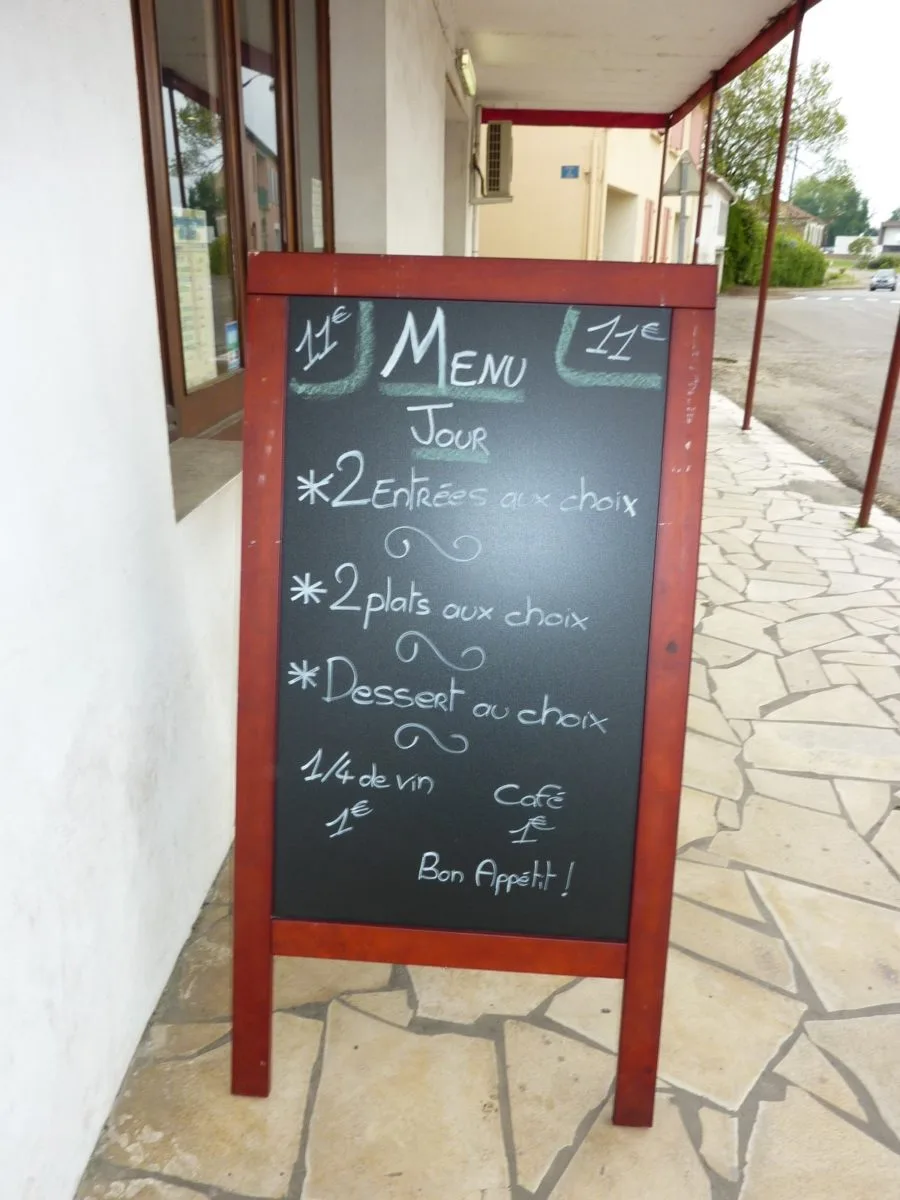 11€ MENU 11€
JOUR
*2 Entrées aux choix
*2 plats aux choix
*Dessert au choix
1/4 de vin Café
1€ 1€
Bon Appétit !